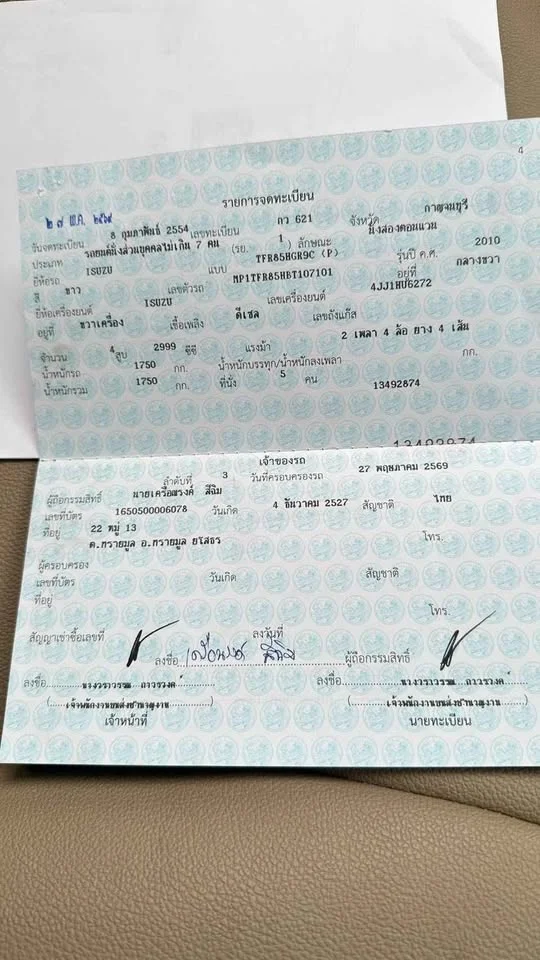 4
รายการจดทะเบียน
๒๗ พ.ค. ๒๕๖๙
วันจดทะเบียน 8 กุมภาพันธ์ 2554 เลขทะเบียน กว 621 จังหวัด กาญจนบุรี
ประเภท รถยนต์นั่งส่วนบุคคลไม่เกิน 7 คน (รย. 1) ลักษณะ นั่งสองตอนแวน
ยี่ห้อรถ ISUZU แบบ TFR85HGR9C (P) รุ่นปี ค.ศ. 2010
สี ขาว เลขตัวรถ MP1TFR85HBT107101 อยู่ที่ กลางขวา
ยี่ห้อเครื่องยนต์ ISUZU เลขเครื่องยนต์ 4JJ1HU6272
อยู่ที่ ขวาเครื่อง เชื้อเพลิง ดีเซล เลขถังแก๊ส
จำนวน 4 สูบ 2999 ซีซี แรงม้า 2 เพลา 4 ล้อ ยาง 4 เส้น
น้ำหนักรถ 1750 กก. น้ำหนักบรรทุก/น้ำหนักลงเพลา กก.
น้ำหนักรวม 1750 กก. ที่นั่ง 5 คน 13492874
13492874
เจ้าของรถ
ลำดับที่ 3 วันที่ครอบครองรถ 27 พฤษภาคม 2569
ผู้ถือกรรมสิทธิ์ นายเครือณรงค์ สีฉิม
เลขที่บัตร 1650500006078 วันเกิด 4 ธันวาคม 2527 สัญชาติ ไทย
ที่อยู่ 22 หมู่ 13 โทร.
ต.ทรายมูล อ.ทรายมูล ยโสธร
ผู้ครอบครอง
เลขที่บัตร วันเกิด สัญชาติ
ที่อยู่ โทร.
สัญญาเช่าซื้อเลขที่ ลงวันที่
ลงชื่อ ผู้ถือกรรมสิทธิ์
ลงชื่อ นางวราวรรณ ถาวรวงค์ ลงชื่อ นางวราวรรณ ถาวรวงค์
(เจ้าพนักงานขนส่งชำนาญงาน) (เจ้าพนักงานขนส่งชำนาญงาน)
เจ้าหน้าที่ นายทะเบียน